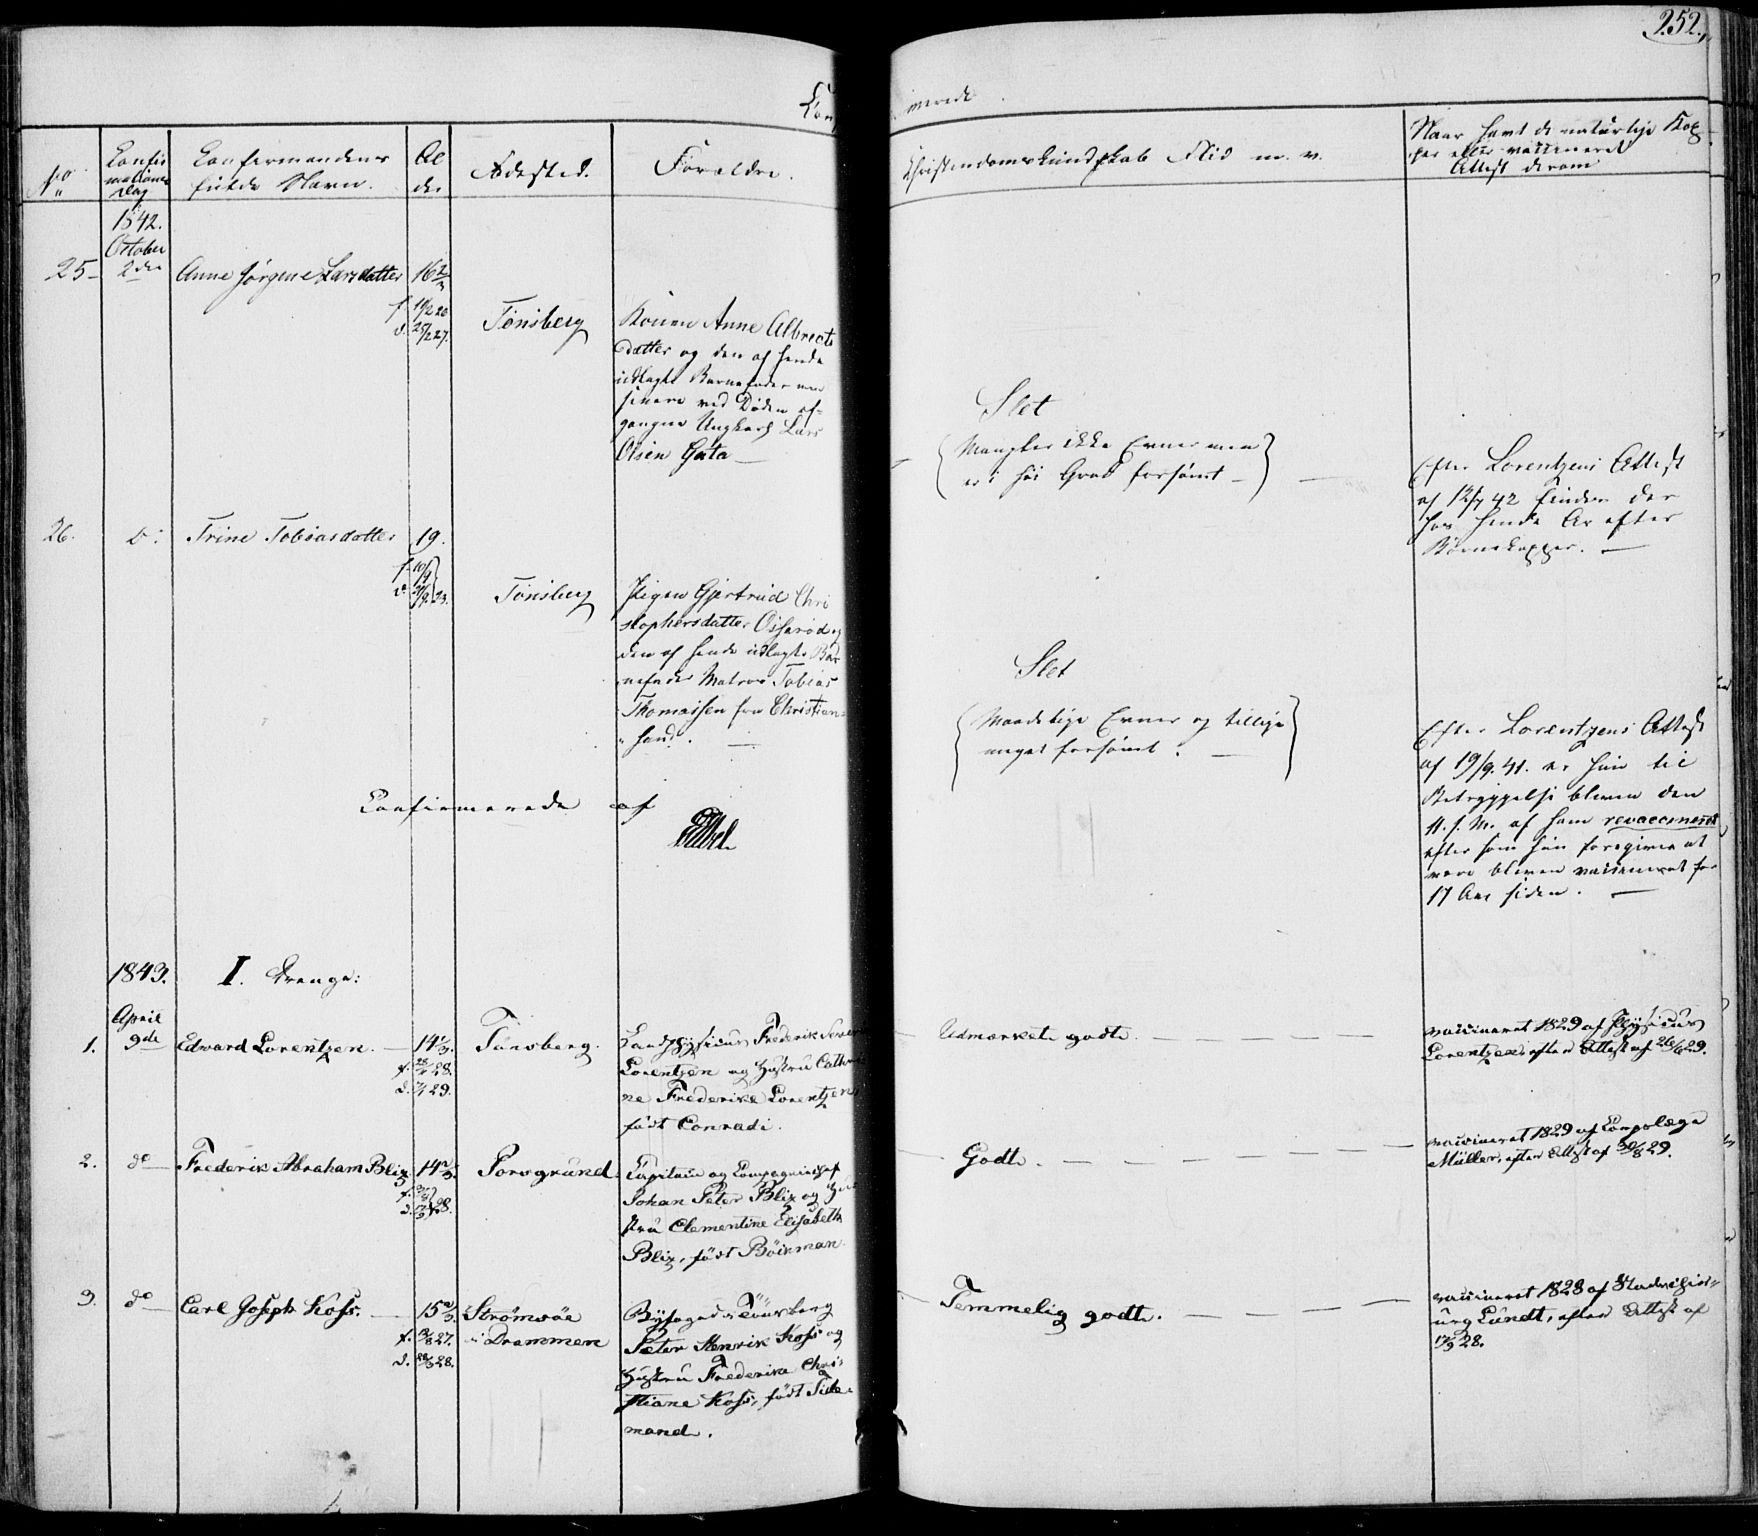 252.
Conf
merede
No
Confir
mations
Dag
Confirmandens
fulde Navn.
Al
der
Fødested.
Forældre.
Christendomskundskab Flid m. v.
Naar havt de naturlige Kop-
per eller vaccineret
Attest derom
1842.
October
25
2den
Anne Jørgene Larsdatter
16
Tønsberg
Konen Anne Albrects
datter og den af hende
udlagte Barnefader
senere ved Døden af-
gangne Ungkarl Lars
Olsen Gata
Slet
Mangler ikke Evner men
er i høi Grad forsømt
Efter Lorentzens Attest
af 12/7 42 findes der
hos hende Ar efter
Børnekopper.
26.
Do
Trine Tobiasdatter
19.
Tønsberg
Pigen Gjertrud Chri
stophersdatter Osserød og
den af hende udlagte Bar
nefader Matros Tobias
Thomassen fra Christian-
sand.
Slet
Maadelige Evner og tillige
meget forsømt.
Efter Lorentzens Attest
af 19/9. 41. er hun til
Betryggelse bleven den
11. f. M. af ham revaccineret
eftersom hun foregiver at
være bleven vaccineret for
17 Aar siden.
Confirmerede af
1843.
I. Drenge:
April
1.
9de
Edvard Lorentzen.
14 1/3.
f. 28.
d. 29.
Tønsberg.
Landphysicus Frederik
Lorentzen og Hustru Cathri
ne Frederike Lorentzen
født Conradi.
Udmærket godt.
vaccineret 1829 af Physicus
Lorentzen efter Attest af 26/6 29.
2.
do
Frederik Abraham Blix
14 2/3.
28.
Porsgrund.
Capitain og Compagnichef
Johan Peter Blix og Hu
stru Clementine Elisabeth
Blix, født Böckman.
Godt.
vaccineret 1829 af Corpslæge
Müller, efter Attest af 30/8 29.
3.
do
Carl Joseph Koss.
15 2/3.
f. 27.
d. 28.
Strømsøe
i Drammen
Byfoged i Tönsberg
Peter Henrik Koss og
Hustru Frederike Chri-
stiane Koss, født Tide-
mand.
Temmelig godt.
vaccineret 1828 af Stadschir-
urg Lundt, efter Attest af
17/9 28.